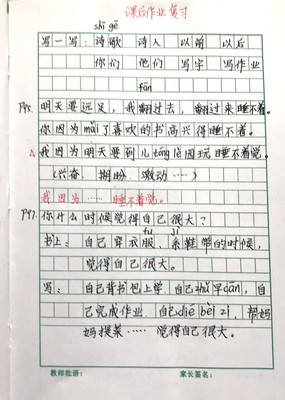 课后作业 复习
shī gē
写一写：诗歌 诗人 以前 以后
你们 他们 写字 写作业
fān
P95. 明天要远足，我翻过去，翻过来睡不着。
你因为mǎi了喜欢的书高兴得睡不着。
△ 我因为明天要到儿tóng公园玩睡不着觉。
（兴奋、期盼、激动……）
我因为……睡不着觉。
P97. 你什么时候觉得自己很大？
fu jì
书上：自己穿衣服、系鞋带的时候，
觉得自己很大。
写：自己背书包上学，自己chī早cān，自
己完成作业，自己dié bèi zi，帮妈
妈提菜……觉得自己很大。
教师批语： 家长签名：